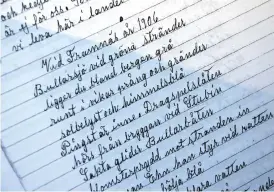 och hedja
är ej för oss. So
vi leva här i landet
Vid Framnäs år 1906
Bullarsjö vid gröna stränder
ligger du bland bergen grå
runt i vikar prång och gränder
solbelyst och himmelsblå
Pingst är inne. Dragspelslåten
hörs från bryggan vid Stubin
Sakta glider Bullarbåten
blomsterprydd mot stranden in
han styr vid ratten
bölja blå
vatten